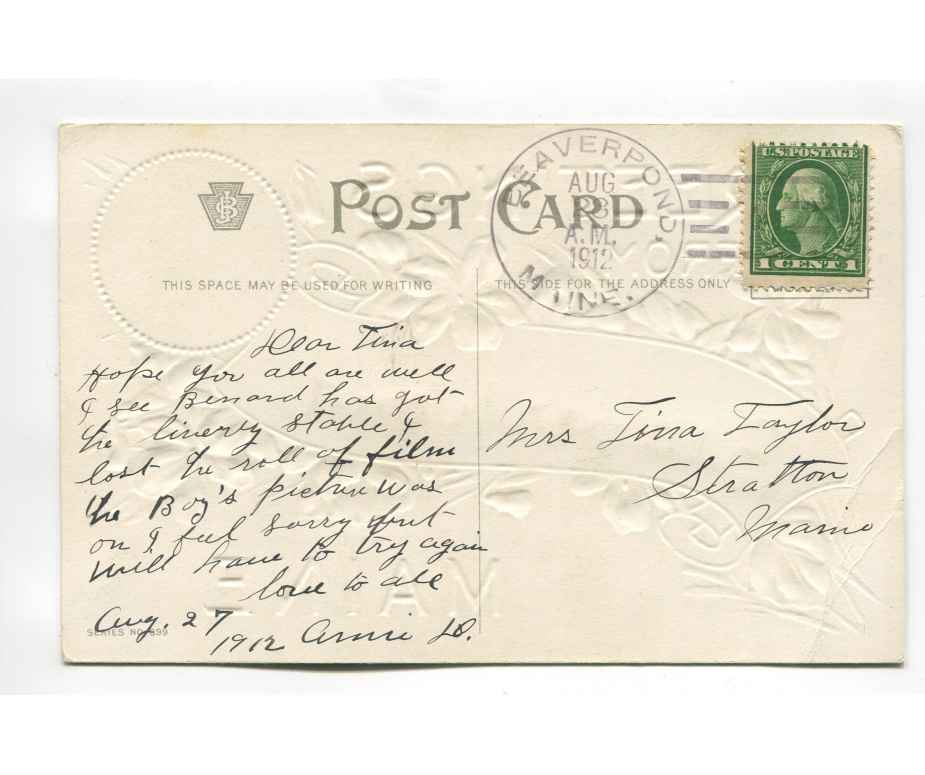 POST CARD
THIS SPACE MAY BE USED FOR WRITING
THIS SIDE FOR THE ADDRESS ONLY
BEAVERPOND.
AUG
A.M.
1912
MAINE.
U.S. POSTAGE
1 CENT 1
Dear Tina
Hope you all are well
I see Bernard has got
the liverty stable I
lost the roll of film
the Boy's picture was
on I feel sorry but
will have to try again
love to all
Aug. 27
1912 Annie D.
SERIES NO. 899
Mrs Tina Taylor
Stratton
Maine